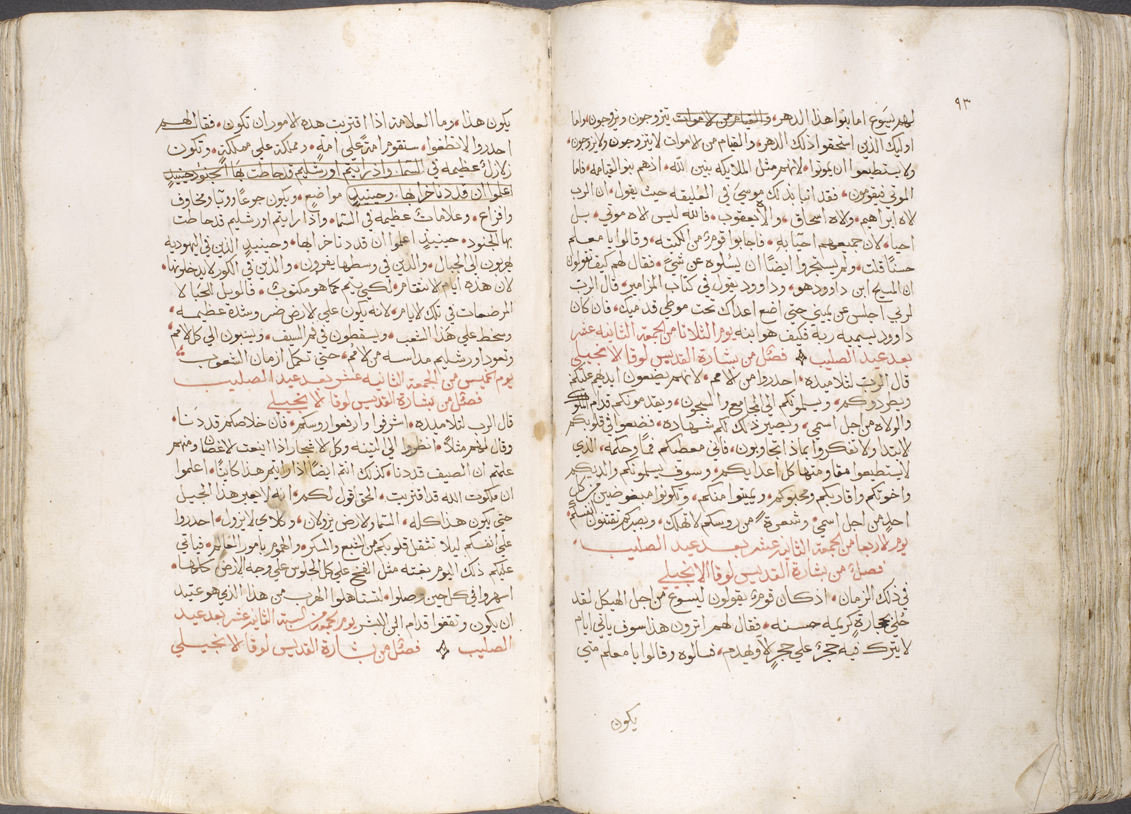 ٩٣
لهم يسوع اما بنوا هذا الدهر، والقيام من لاموات يتزوجون ويزوجون، واما
اوليك الذين استحقوا ذلك الدهر، والقيام من لاموات لا يتزوجون ولا يزوجون،
ولا يستطيعوا ان يموتوا، لانهم مثل الملايكه بنين الله، اذهم بنو القيامه، فاما
الموتي فيقومون، فقد انبا بذلك موسي في العليقه حيث يقول، ان الرب
لاه ابراهيم، ولاه اسحاق، والاه يعقوب، فالله ليس لاه موتي، بل
احيا، لان جميعهم احيا به، فاجابوا قوم من الكتبه، وقالوا يا معلم
حسنًا قلت، ولم يستجروا ايضًا ان يسلوه عن شي، فقال لهم كيف تقولون
ان المسيح ابن داوود هو، وداوود يقول في كتاب المزامير، قال الرب
لربي اجلس عن يميني حتي اضع اعداك تحت موطي قدميك، فان كان
داوود يسميه ربه فكيف هو ابنه يوم الثلاثا من الجمعه الثانيه عشر
بعد عيد الصليب فصل من بشارة القديس لوقا لانجيلي
قال الرب لتلاميذه، احدروا من لامم، لانهم يضعون ايديهم عليكم
ويطردوكم، ويسلمونكم الي المجامع والسجون، ويقدمونكم قدام الملوك
والولاه من اجل اسمي، ويصير ذلك لكم شهاده، فضعوا في قلوبكم
لا تبتدوا ولا تفكروا بماذا تجاوبون، فاني معطيكم فمًا وحكمه، الذي
لا يستطيعوا مقاومتها كل اعدايكم، وسوف يسلمونكم والديكم
واخوتكم واقاربكم ومحبوكم، ويميتوا منكم، وتكونوا مبغوضين من كل
احد من اجل اسمي، وشعرة من روسكم لا تهلك، وبصبركم تقتنون انفسكم
يوم لاربعا من الجمعه الثانيه عشر بعد عيد الصليب
فصل من بشارة القديس لوقا الانجيلي
في ذلك الزمان، اذ كان قوم يقولون ليسوع من اجل الهيكل لقد
حُلي بحجارة كريمه حسنه، فقال لهم اترون هذا سوف ياتي ايام
لا يترك فيه حجر علي حجر الا ويهدم، فسالوه وقالوا يا معلم متي
يكون
يكون هذا، وما العلامه اذا اقتربت هده لامور ان تكون، فقال لهم
احدروا لا تضلوا، ستقوم امة علي امه، ومملكه علي مملكه، وتكون
زلازل عظيمه في السما، واذا رايتم اورشليم قد احاطت بها الجنود حينيذ
اعلموا ان قد دنا خرابها، وحينيذ مواضع، ويكون جوعًا ووبا، ومخاوف
وافزاع، وعلامات عظيمه في السما، واذا رايتم اورشليم قد احاطت
بها الجنود، حينيذ اعلموا ان قد دنا خرابها، وحينيذ الذين في اليهوديه
يهربون الي الجبال، والذين في وسطها يفرون، والذين في الكور لا يدخلوها،
لان هذه ايام لانتقام، لكي يتم كما هو مكتوب، فالويل للحبالا
المرضعات في تلك لايام، لانه يكون علي لارض ضر وشدة عظيمه،
وسخط علي هذا الشعب، ويسقطون في فم السيف، ويسبون الي كل لامم
وتعود اورشليم مداسه من لامم، حتي تكمل ازمان الشعوب
يوم لخميس من الجمعه الثانيه عشر بعد عيد الصليب
فصل من بشارة القديس لوقا لانجيلي
قال الرب لتلاميده، اشرفوا وارفعوا روسكم، فان خلاصكم قد دنا،
وقال لهم مثلا، انظروا الي التينه وكل لاشجار اذا اينعت لاغصان ومنهم
علمتم ان الصيف قد دنا، كذلك انتم ايضًا اذا رايتم هذا كاينًا، اعلموا
ان ملكوت الله قد اقتربت، الحق اقول لكم، انه لا يعبر هذا الجيل
حتي يكون هذا كله، السما ولارض يزولان، وكلامي لا يزول، احدروا
علي انفسكم ليلا تتثقل قلوبكم من الشبع والسكر، والهموم بامور العالم، فياتي
عليكم ذلك اليوم بغته مثل الفخ علي كل الجلوس علي وجه الارض كلها،
اسهروا في كل حين وصلوا، لتستاهلوا الهرب من هذا الذي هو عتيد
ان يكون، وتقفوا قدام ابن البشر يوم الجمعه من الثانيه عشر بعد عيد
الصليب فصل من بشارة القديس لوقا لانجيلي